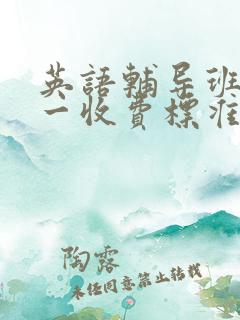 英語輔导班
一收費標准
陶露
未经同意禁止转载